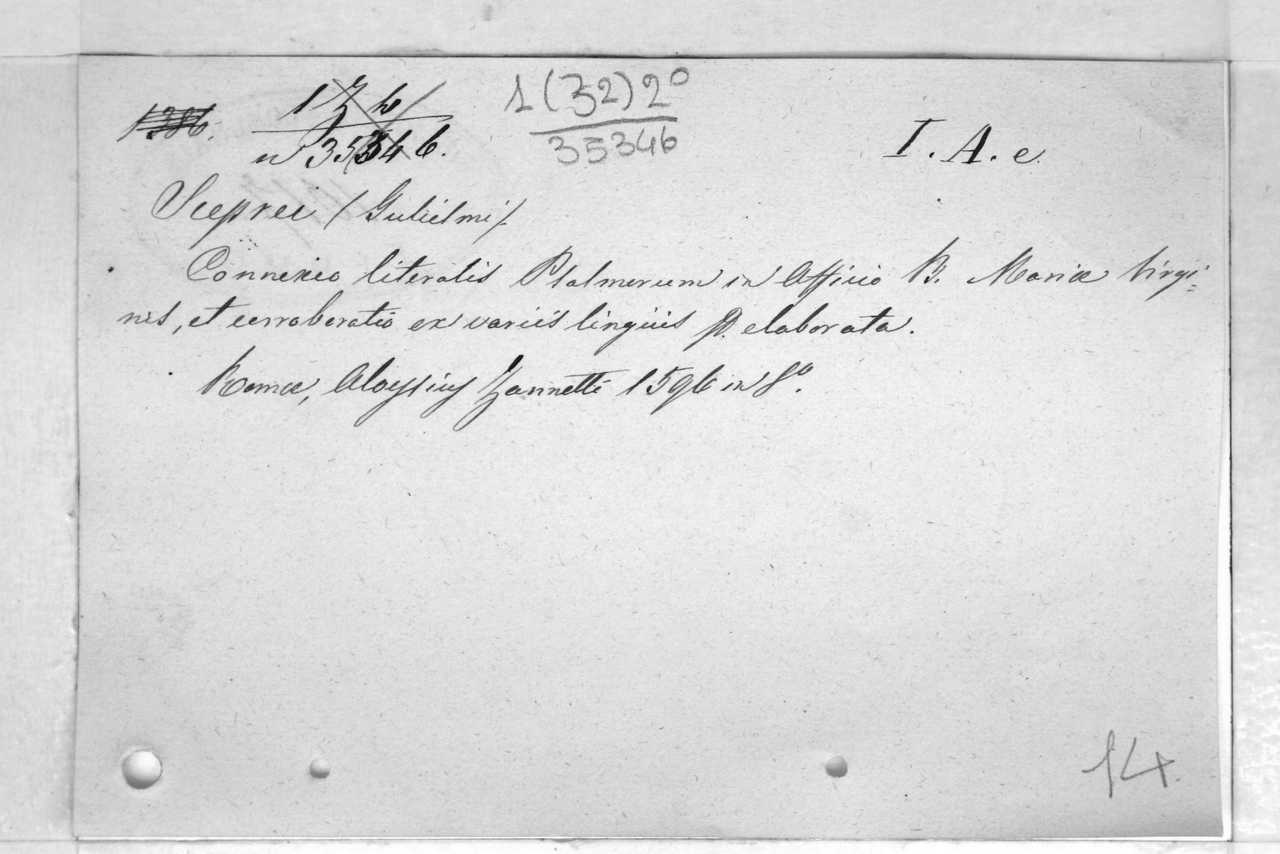 1386.
1 Z b/
n 35346.
1 (32) 2º
35346
I. A. e
Sceprei / Gulielmi /.
Connexio literalis Psalmorum in Officio B. Mariæ Virgi=
nis, et corroboratio ex variis linguis elaborata.
Romæ, Aloysius Zannetti 1596 in 8º.
14.